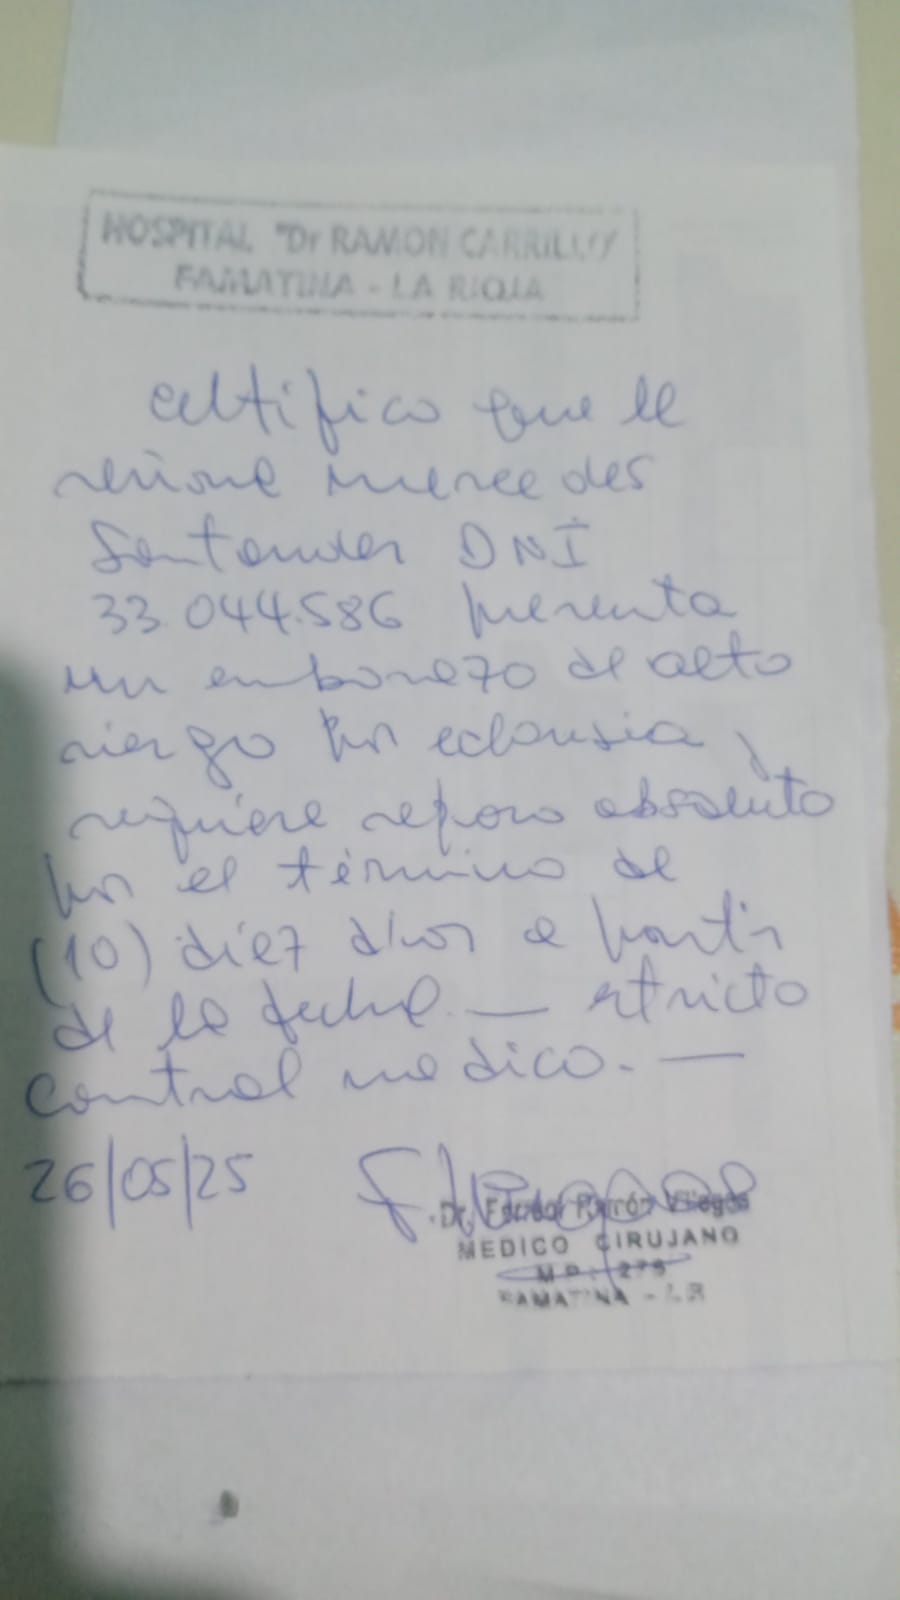 HOSPITAL "Dr RAMON CARRILLO"
FAMATINA - LA RIOJA
Certifico que la
señora Mercedes
Santander DNI
33.044.586 presenta
un embarazo de alto
riesgo por eclansia,
requiere reposo absoluto
por el término de
(10) diez días a partir
de la fecha. — stricto
control medico. —
26/05/25
Dr. Parrón Villegas
MEDICO CIRUJANO
M.P.: 275
FAMATINA - LR